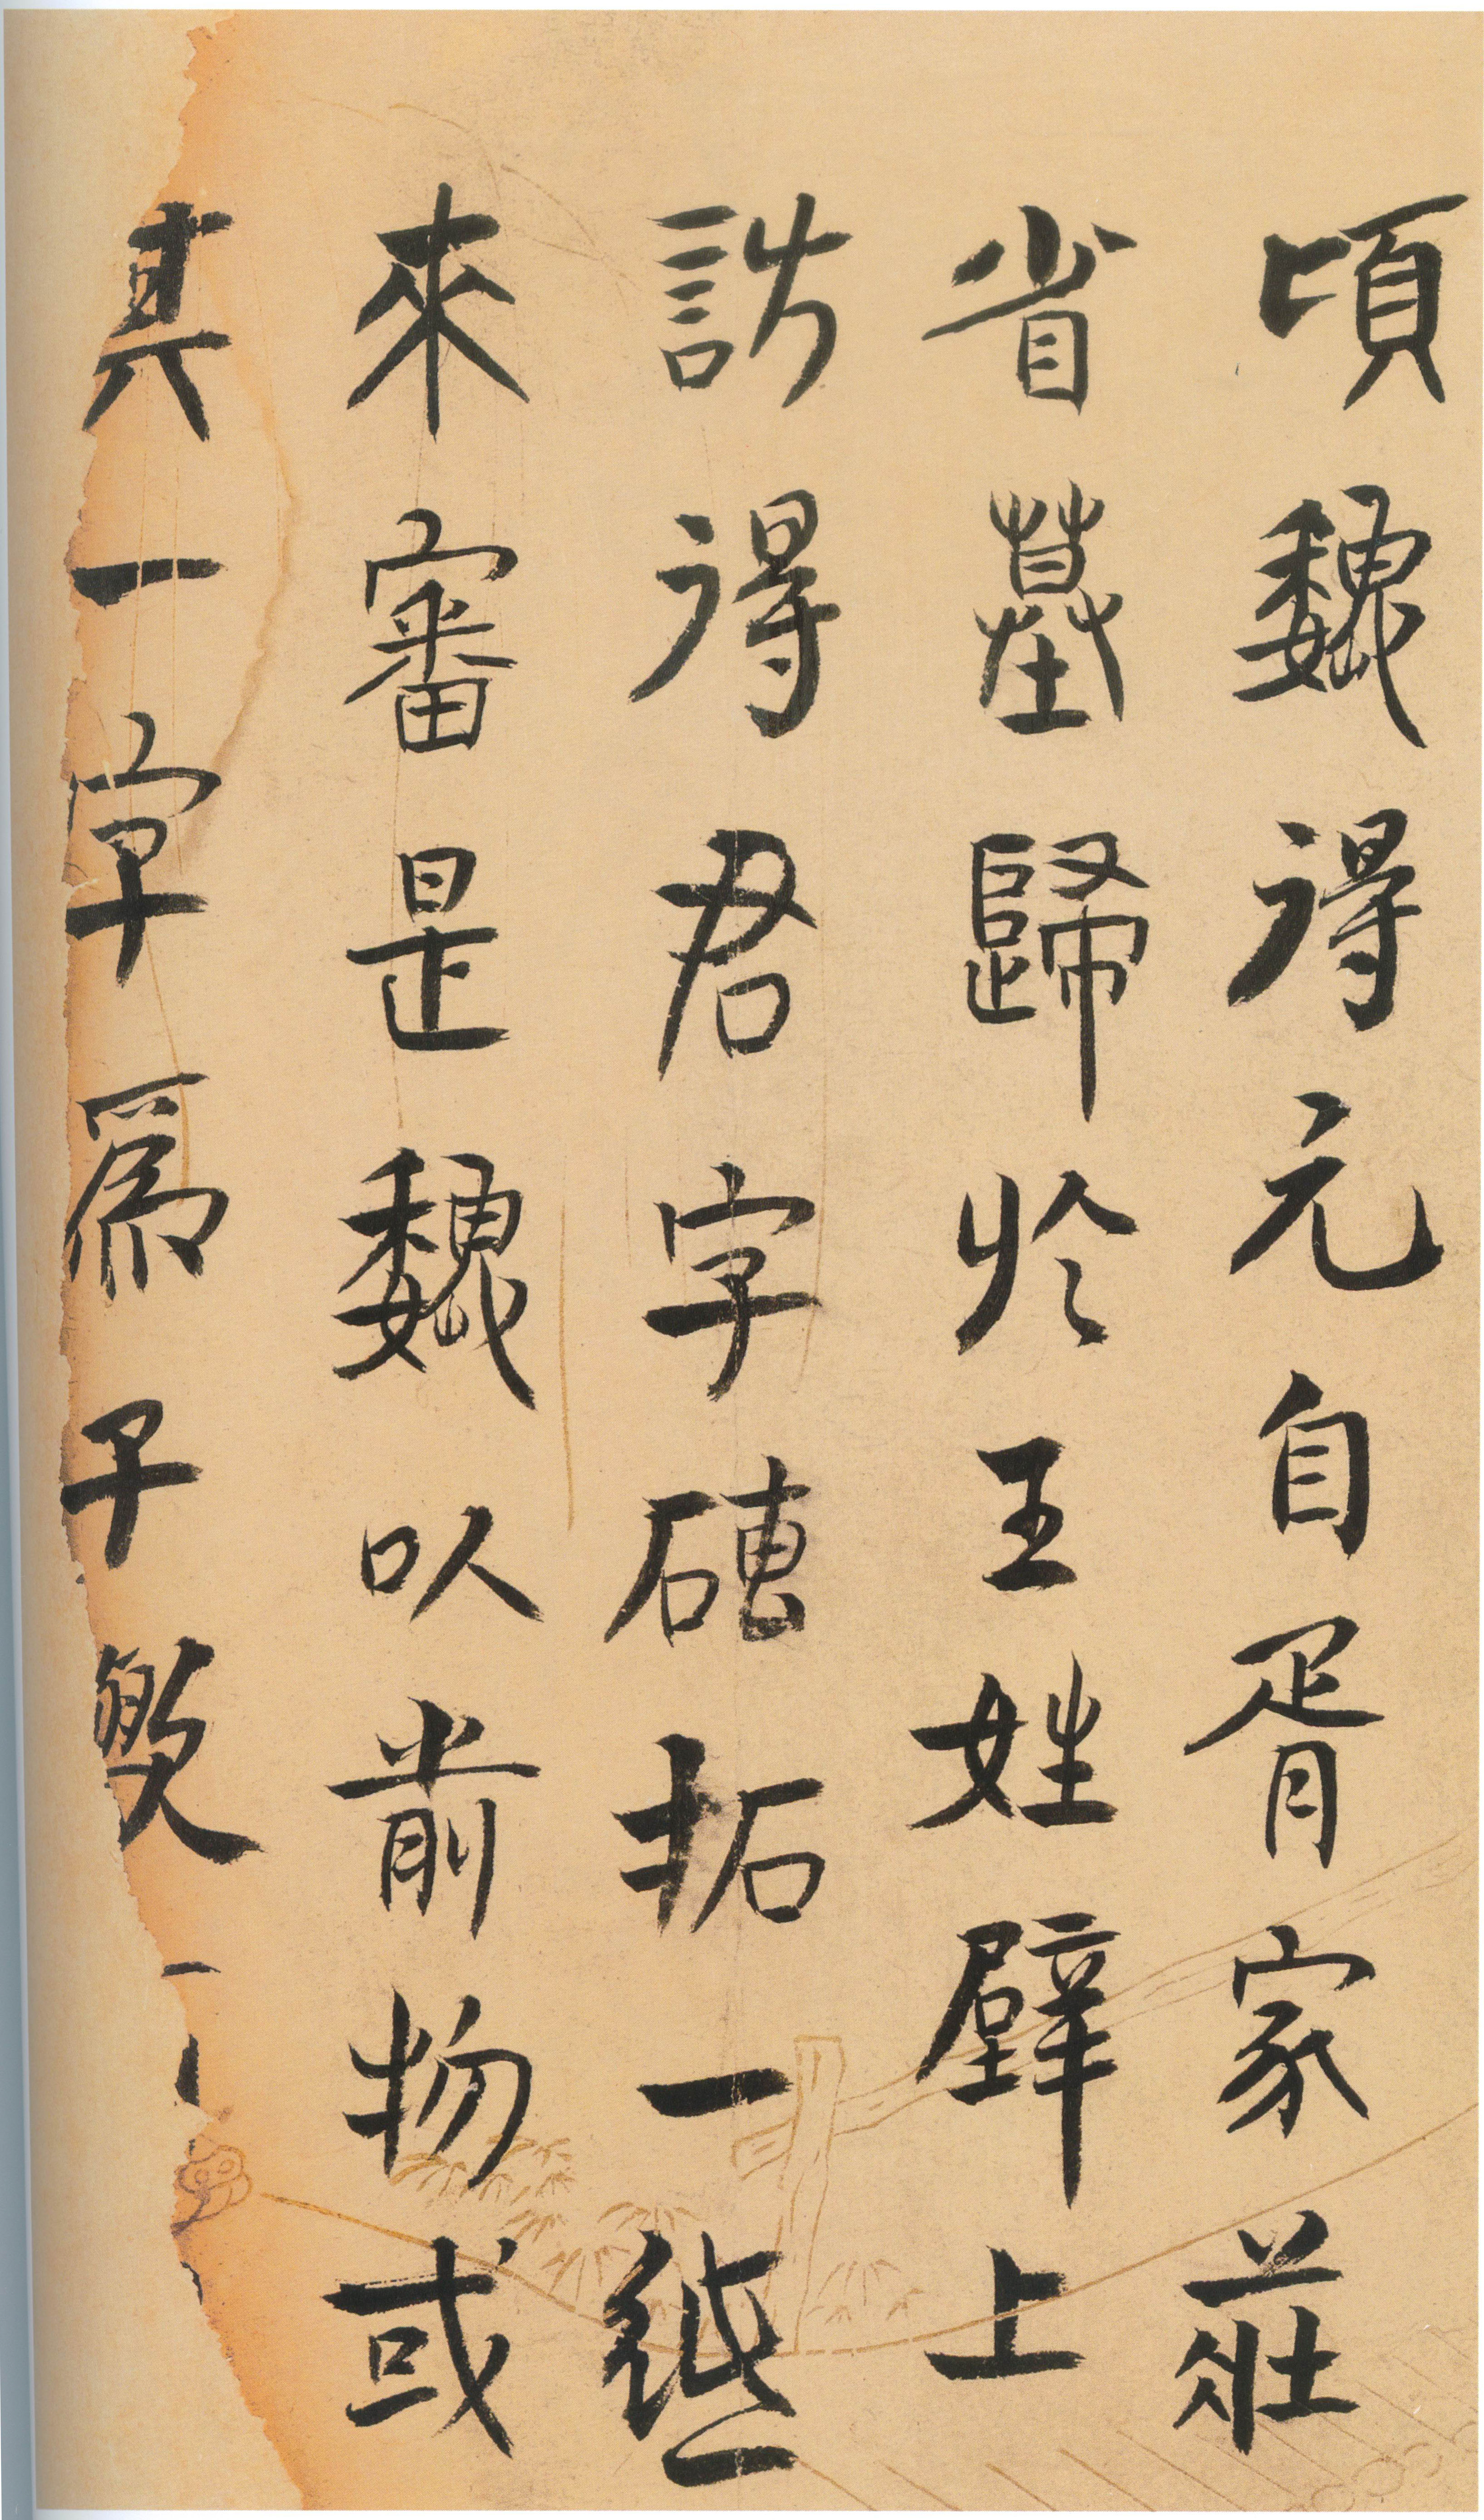 頃魏得元自胥家莊
省墓歸於王姓壁上
訪得君字磚拓一紙
來審是魏以前物或
其一字為子